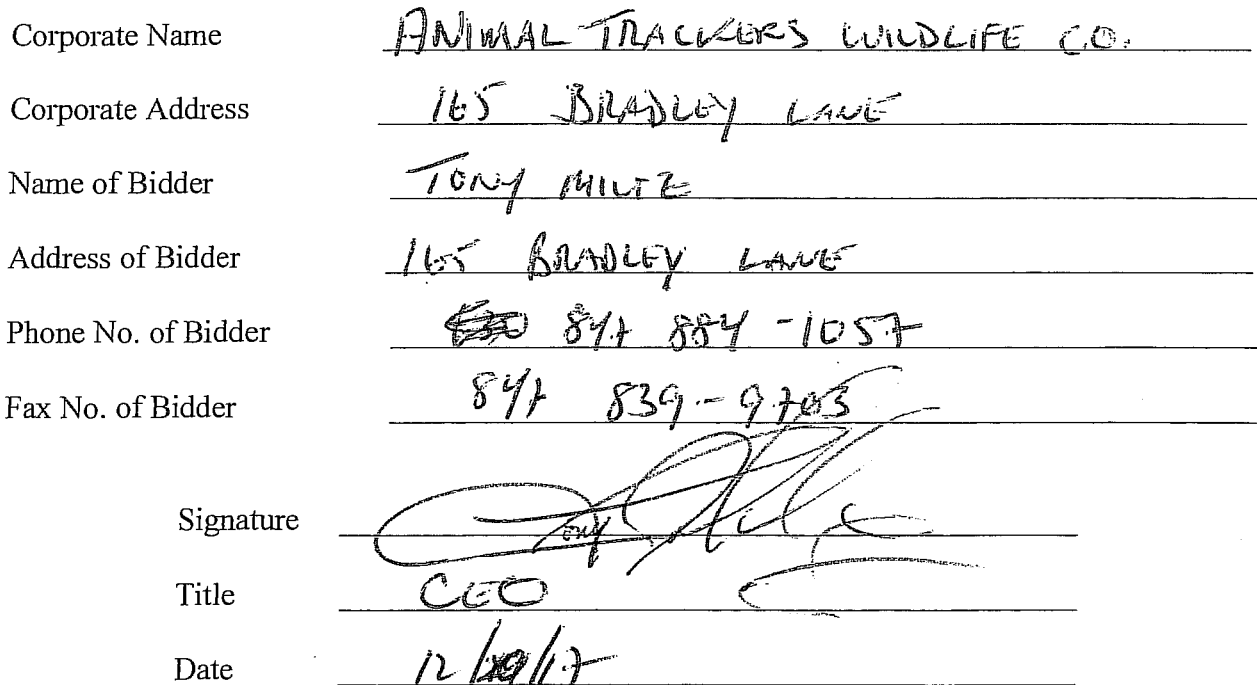 Corporate Name ANIMAL TRACKERS WILDLIFE CO.
Corporate Address 165 BRADLEY LANE
Name of Bidder TONY MILTZ
Address of Bidder 165 BRADLEY LANE
Phone No. of Bidder 847 884-1057
Fax No. of Bidder 847 839-9703
Signature Tony
Title CEO
Date 12/ /17